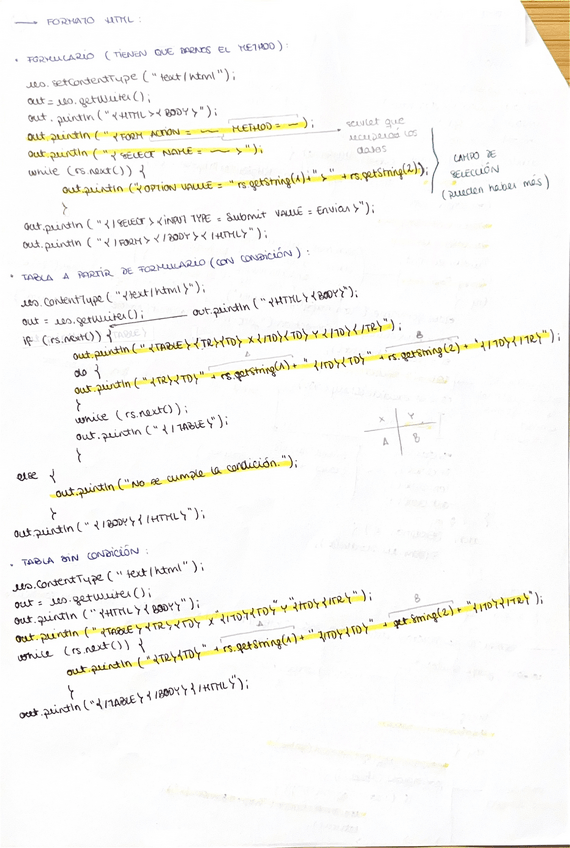 → FORMATO HTML:
• FORMULARIO (TIENEN QUE DARNOS EL METHOD):
res.setContentType ("text/html");
out = res.getWriter();
out.println("<HTML><BODY>");
out.println("<FORM ACTION = ~~ METHOD = ~");
servlet que recuperará los datos
out.println("<SELECT NAME = ~~ >");
while (rs.next()) {
out.println("<OPTION VALUE = "rs.getString(1)+">" +rs.getString(2));
}
CAMPO DE SELECCIÓN (pueden haber más)
out.println("</SELECT><INPUT TYPE = Submit VALUE = Enviar>");
out.println("</FORM></BODY></HTML>");
• TABLA A PARTIR DE FORMULARIO (CON CONDICIÓN):
res.ContentType ("<text/html>");
out = res.getWriter(); ← out.println("<HTML><BODY>");
if (rs.next()) {
out.println("<TABLE><TR><TD> X</TD><TD> Y </TD></TR>");
do {
A B
out.println("<TR><TD>" + rs.getString(1)+ "</TD><TD>" + rs.getString(2) + "</TD></TR>");
}
while (rs.next());
out.println("</TABLE>");
}
X Y
A B
else {
out.println("No se cumple la condición.");
}
out.println("</BODY></HTML>");
• TABLA SIN CONDICIÓN:
res.ContentType ("text/html");
out = res.getWriter();
out.println("<HTML><BODY>");
out.println("<TABLE><TR><TD> X "</TD><TD>" Y "</TD></TR>");
while (rs.next()) {
A B
out.println("<TR><TD>" + rs.getString(1)+ "</TD><TD>" + get.String(2) + "</TD></TR>");
}
out.println("</TABLE></BODY></HTML>");